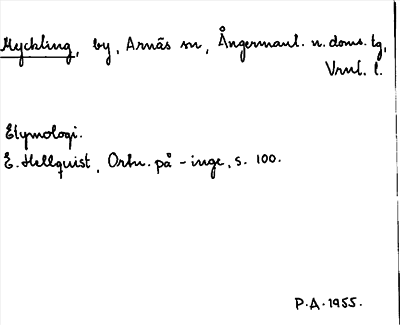 Myckling, by, Arnäs sn, Ångermanl. n. doms. tg,
Vrnl. l.
Etymologi.
E. Hellquist, Ortn. på -inge, s. 100.
P.A. 1955.